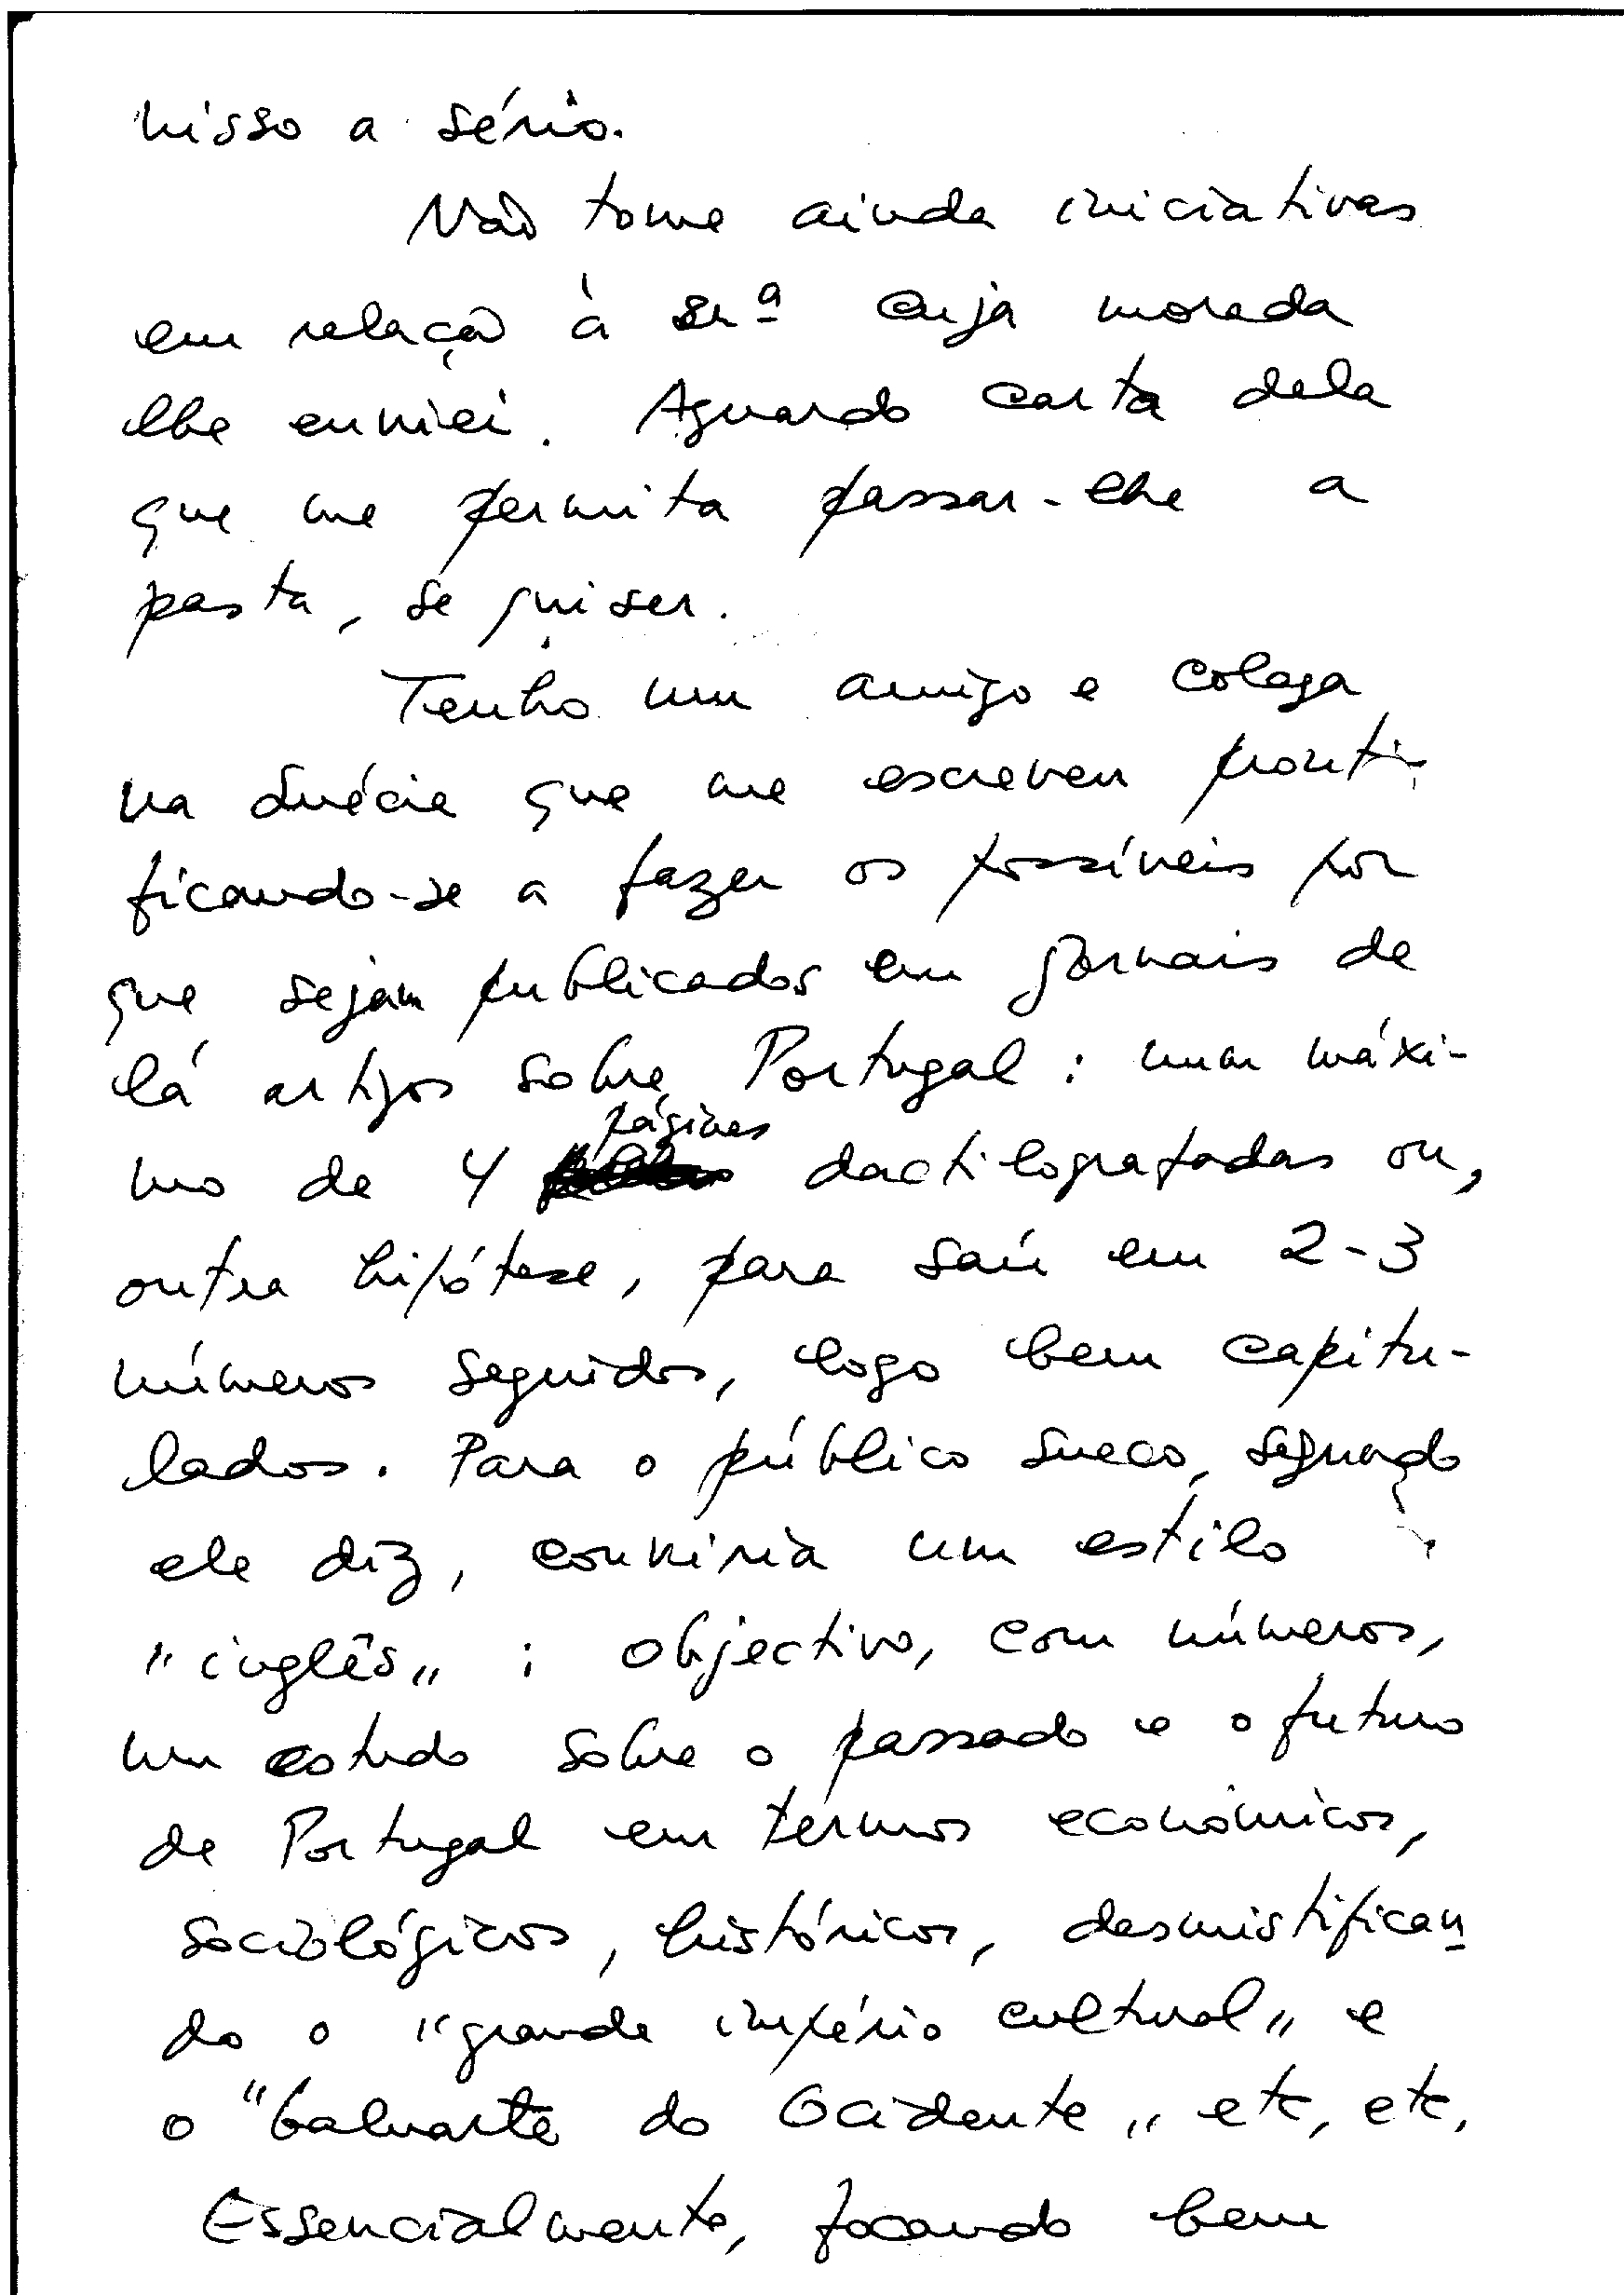 nisso a sério.
Não tome ainda iniciativas
em relação à srª cuja morada
lhe enviei. Aguardo carta dela
que me permita passar-lhe a
pasta, se quiser.
Tenho um amigo e colega
na Suécia que me escreveu pronti-
ficando-se a fazer os possíveis por
que sejam publicados em jornais de
lá artigos sobre Portugal: num máxi-
páginas
mo de 4 dactilografadas ou,
outra hipótese, para sair em 2-3
números seguidos, logo bem capitu-
lados. Para o público sueco, segundo
ele diz, conviria um estilo
"inglês": objectivo, com números,
um estudo sobre o passado e o futuro
de Portugal em termos económicos,
sociológicos, históricos, desmistifican
do o "grande império cultural" e
o "baluarte do Ocidente" etc, etc,
Essencialmente, focando bem